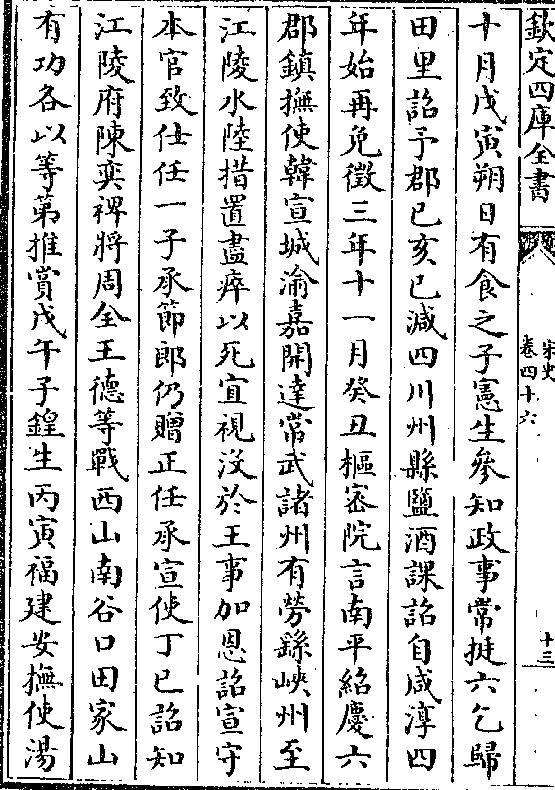 欽定四庫全書
宋史
卷四十六
十三
十月戊寅朔日有食之子憲生參知政事常挺六乞歸
田里詔予郡己亥已減四川州縣鹽酒課詔自咸淳四
年始再免徵三年十一月癸丑樞密院言南平紹慶六
郡鎮撫使韓宣城渝嘉開達常武諸州有勞繇峽州至
江陵水陸措置盡瘁以死宜視没於王事加恩詔宣守
本官致仕任一子承節郎仍贈正任承宣使丁巳詔知
江陵府陳奕裨將周全王德等戰西山南谷口田家山
有功各以等第推賞戊午子鍠生丙寅福建安撫使湯